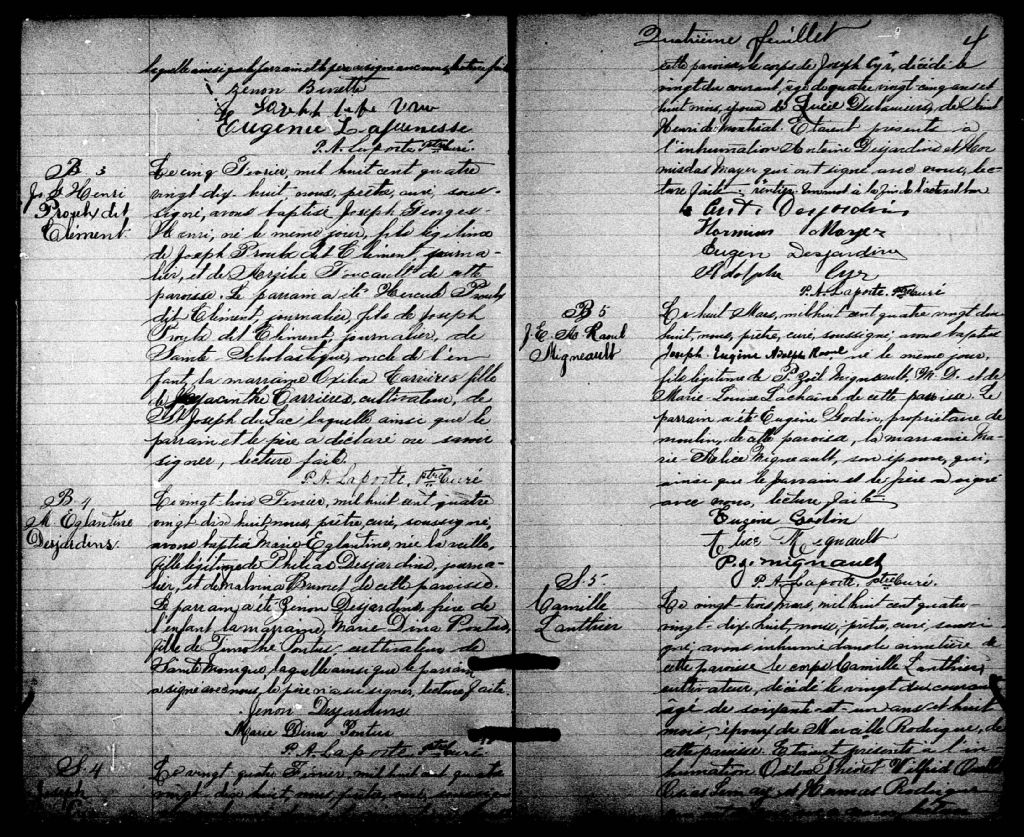 laquelle ainsi que le parrain et le père a signé avec nous, lecture faite
Zénon Binette
Eugenie Lajeunesse
P. A. Laporte, ptre Curé
B 3
Js G. Henri
Proulx dit
Clément
Le cinq Fevrier, mil huit cent quatre
vingt dix-huit, nous, prêtre, curé, sous-
signé, avons baptisé Joseph Georges-
Henri, né le même jour, fils légitime
de Joseph Proulx dit Clément, journa-
lier, et de Foucault de cette
paroisse. Le parrain a été Hercule Proulx
dit Clément, journalier, fils de Joseph
Proulx dit Clément, journalier, de
Sainte Scholastique, oncle de l'en
fant, la marraine Exilia Carrières fille
de Hyacinthe Carrières, cultivateur, de
St Joseph du Lac laquelle ainsi que le
parrain et le père a déclaré ne savoir
signer, lecture faite.
P. A. Laporte, ptre Curé
B 4
M. Eglantine
Desjardins.
Le vingt trois Fevrier, mil huit cent quatre
vingt dix huit, nous, prêtre, curé, soussigné,
avons baptisé Marie Eglantine, née la veille,
fille légitime de Philias Desjardins, journa-
lier, et de Malvina Brunet de cette paroisse.
Le parrain, a été Zénon Desjardins, frère de
l'enfant, la marraine, Marie Dina Pontus,
fille de Timothé Pontus cultivateur de
Sainte Monique, laquelle ainsi que le parrain
a signé avec nous, le père n'a su signer, lecture faite.
Zenon Desjardins
Marie Dina
P. A. Laporte ptre Curé
S. 4
Joseph
Le vingt quatre Fevrier, mil huit cent quatre
vingt dix huit, nous, prêtre, curé, soussigné
Quatrième feuillet 4
cette paroisse le corps de Joseph Cyr, décédé le
vingt du courant, âgé de quatre vingt-cinq ans et
huit mois, époux de Lucie Desla­uriers, de Saint
Henri de Montréal. Etaient presents à
l'inhumation Antoine Desjardins et Hor
misdas Mayer qui ont signé avec nous, lec-
ture faite.
Ant. Desjardins
Hormisdas Mayer
Eugene Desjardins
Adolphe Cyr
P. A. Laporte, ptre Curé
B 5
J. E. A. Raoul
Migneault
Le huit Mars, mil huit cent quatre vingt dix
huit, nous, prêtre, curé, soussigné, avons baptisé
Joseph-Eugène Adolphe Raoul, né le même jour,
fils légitime de P. Zoël Migneault, M. D. et de
Marie-Louise Lachaine de cette paroisse. Le
parrain a été Eugène Godin, propriétaire de
moulin, de cette paroisse, la marraine Ma-
rie-Alice Migneault, son épouse, qui,
ainsi que le parrain et le père a signé
avec nous, lecture faite
Eugène Godin
Alice Mignault
P. J. Mignault
P. A. Laporte, ptre Curé.
S. 5
Camille
Lanthier
Le vingt-trois Mars, mil huit cent quatre
vingt-dix huit, nous, prêtre, curé soussi-
gné, avons inhumé dans le cimetière de
cette paroisse le corps Camille Lanthier,
cultivateur, décédé le vingt du courant
âgé de soixante-et-un ans et huit
mois, époux de Marcelle Rodrigue, de
cette paroisse. Etaient présents à l'in
humation Wilfrid
et Rodrigue